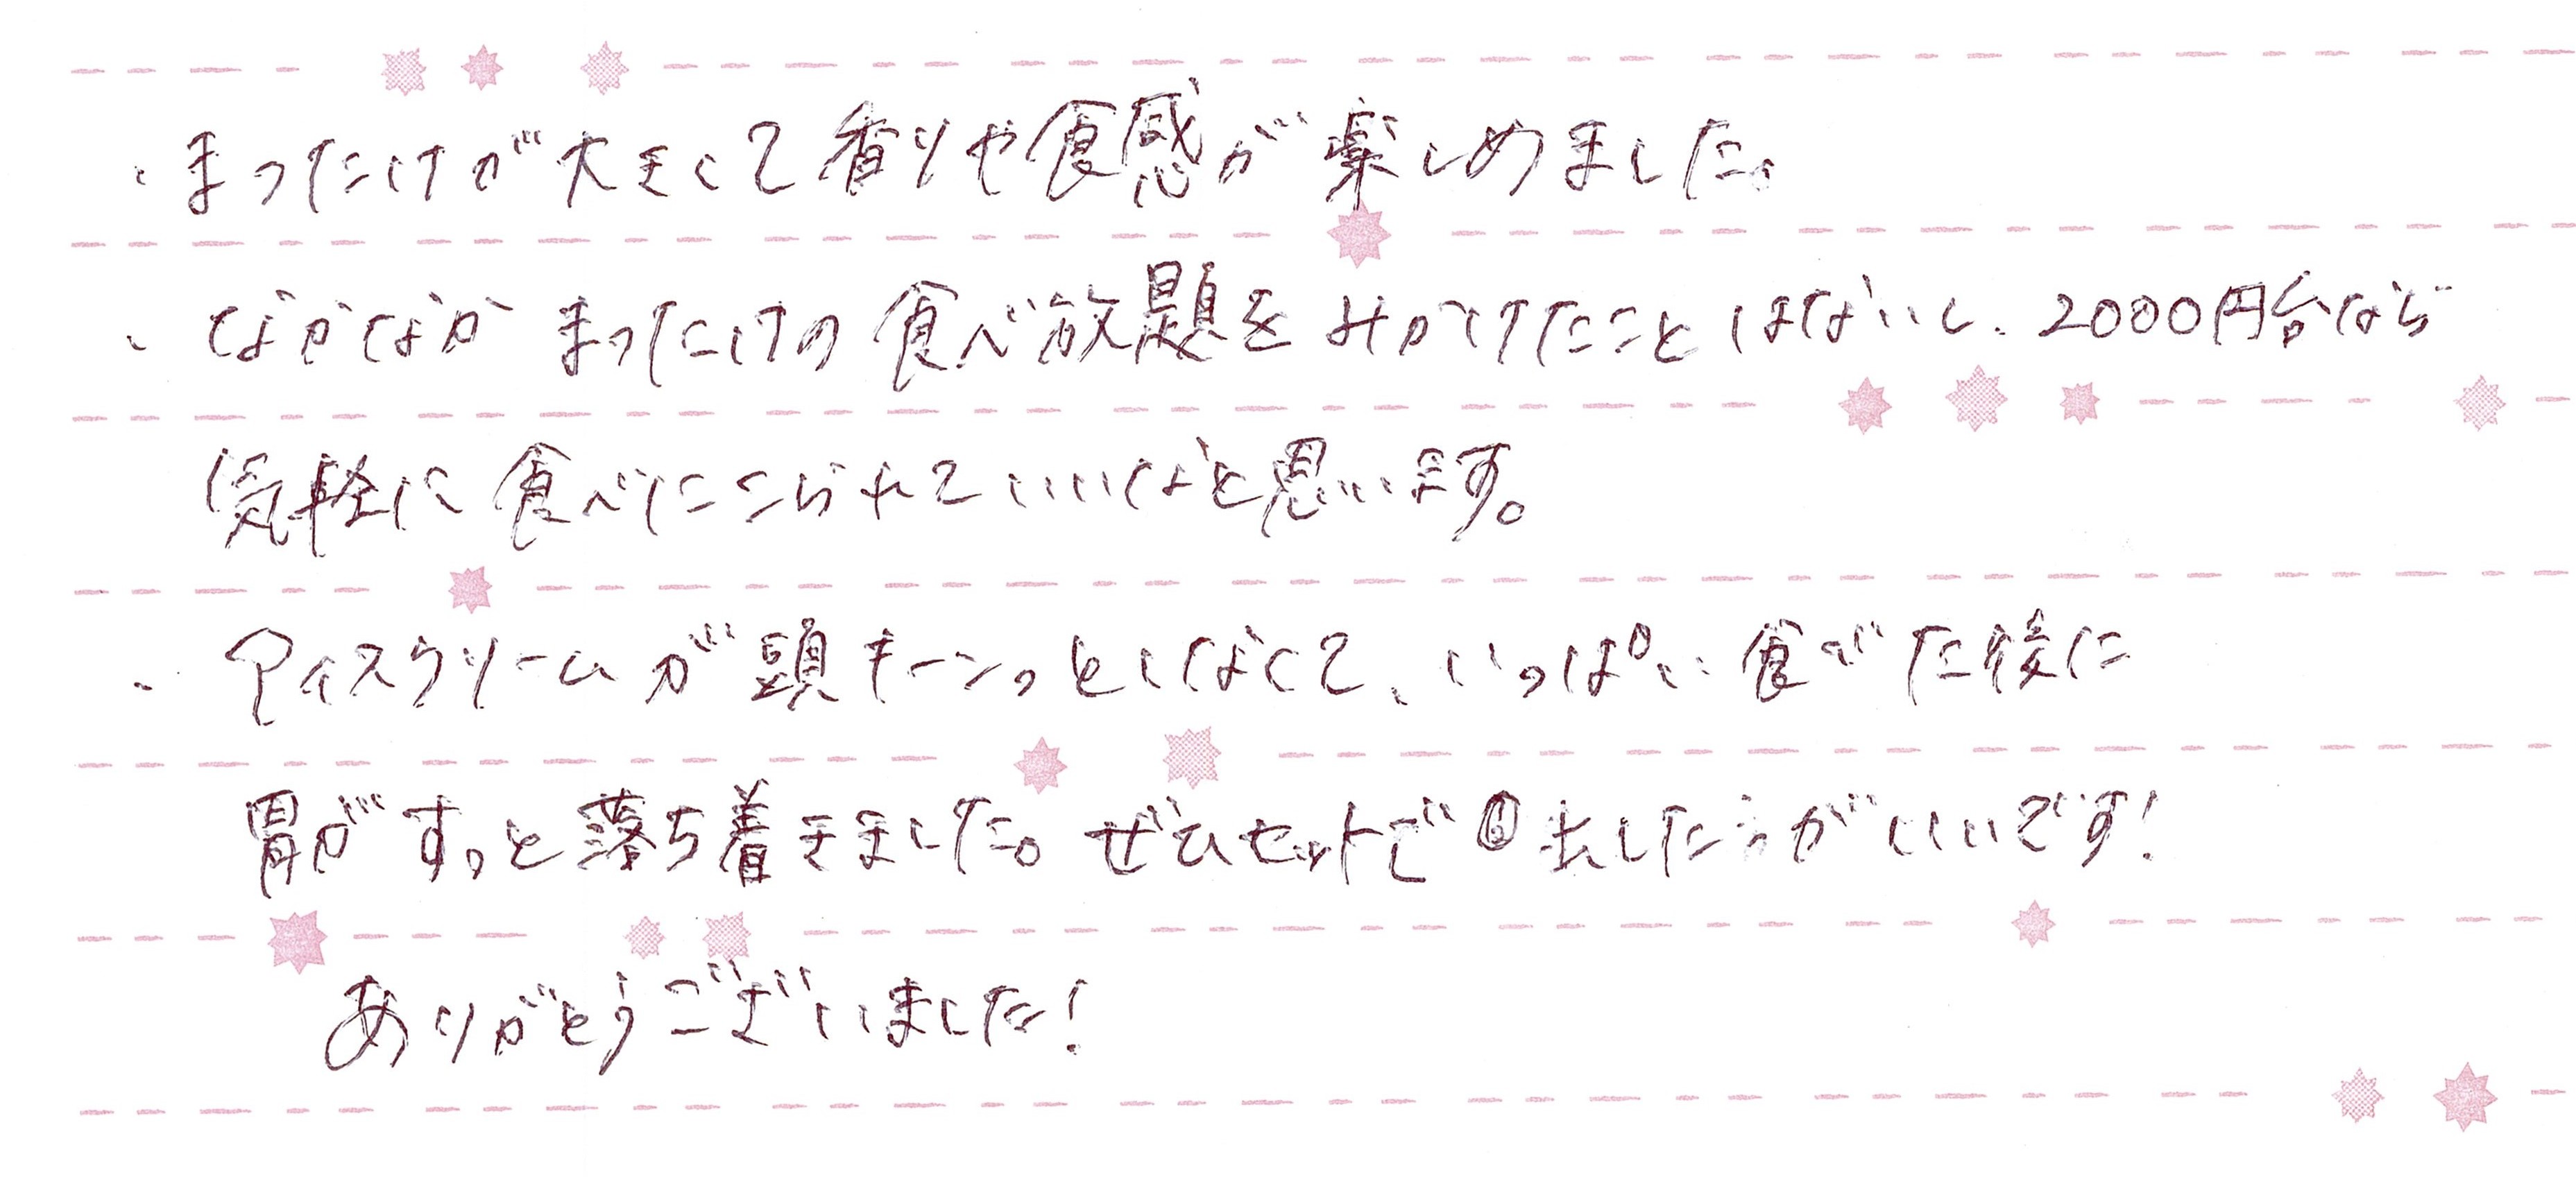 ・まったけが大きくて香りや食感が楽しめました。
・なかなかまったけの食べ放題をみかけたことはないし、2000円台なら
気軽に食べにこられていいなと思います。
・アイスクリームが頭キーンっとしなくて、いっぱい食べた後に
胃がすっと落ち着きました。ぜひセットで出したうがいいです!
ありがとうございました!